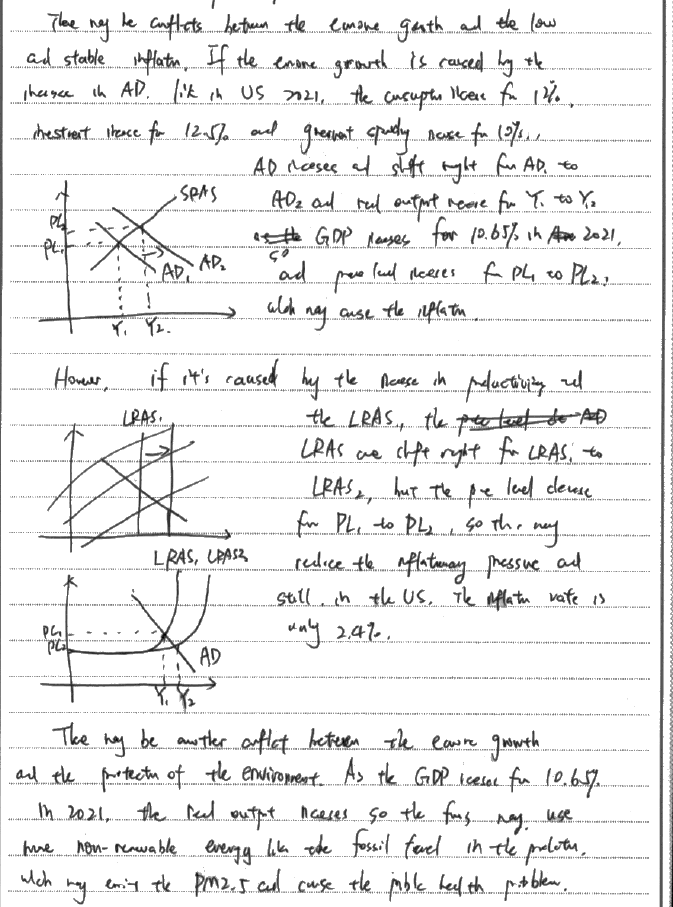 There may be conflicts between the economic growth and the low
and stable inflation. If the economic growth is caused by the
increase in AD. like in US 2021, the consumption increase for 12%,
investment increase for 12.5% and government spending increase for 10%,
AD increases and shift right from AD1 to
AD2 and real output increase from Y1 to Y2
so GDP increases for 10.65% in 2021,
and price level increases from PL1 to PL2,
which may cause the inflation.
SRAS
PL2
PL1
AD2
AD1
Y1 Y2
However, if it's caused by the increase in productivity and
the LRAS, the
LRAS1
LRAS are shift right from LRAS1 to
LRAS2, but the price level decrease
from PL1 to PL2, so this may
LRAS1 LRAS2
reduce the inflationary pressure and
still, in the US. The inflation rate is
only 2.4%.
PL1
PL2
AD
Y1 Y2
There may be another conflict between the economic growth
and the protection of the environment. As the GDP increase for 10.65%
in 2021, the real output increases so the firms may use
more non-renewable energy like the fossil fuel in the production,
which may the PM2.5 and cause the public health problem.